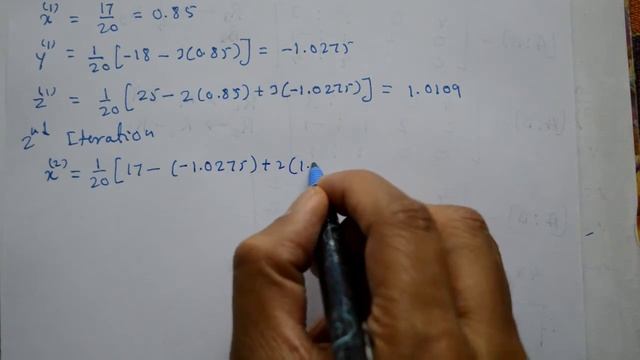 x⁽¹⁾ = 17/20 = 0.85
y⁽¹⁾ = 1/20 [-18 - 3(0.85)] = -1.0275
z⁽¹⁾ = 1/20 [25 - 2(0.85) + 3(-1.0275)] = 1.0109
2nd Iteration
x⁽²⁾ = 1/20 [17 - (-1.0275) + 2(1.